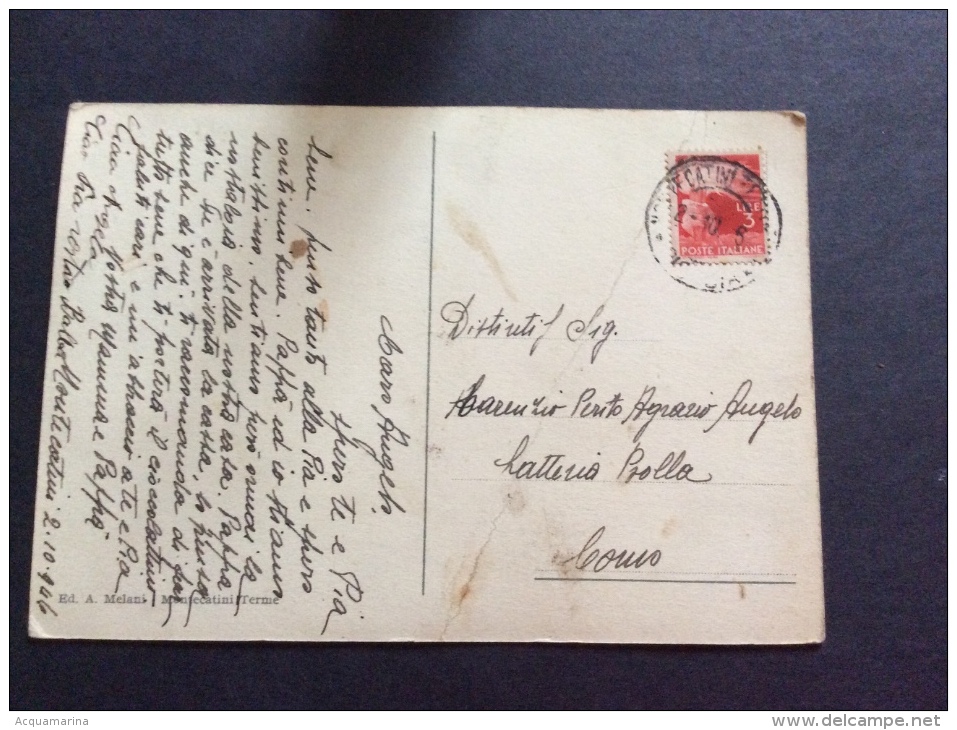 Caro Angelo,
spero te e Pia
bene. penso tanto alla Pia e spero
continui bene. Pappà ed io stiamo
benissimo, sentiamo però ormai la
nostalgia della nostra casa. Pappà
dice se è arrivata la cassa, lo pensa
anche di qui. ti raccomanda di far
tutto bene che ti porterà il cioccolatino
saluti cari, e un abbraccio a te e Pia
Ciao Angelo. Vostra Mamma e Pappà
Ciao Pia
Montecatini 2.10.946
Ed. A. Melani - Montecatini Terme
MONTECATINI
2-10
LIRE
3
POSTE ITALIANE
Distinti Sig.
Marenzio Perito Agrario Angelo
Latteria Prolla
Como
Acquamarina
www.delcampe.net